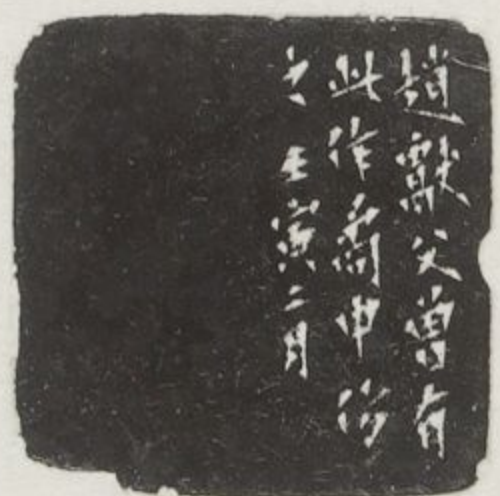 趙獻父曾有
此作喬申仿
之壬寅二月